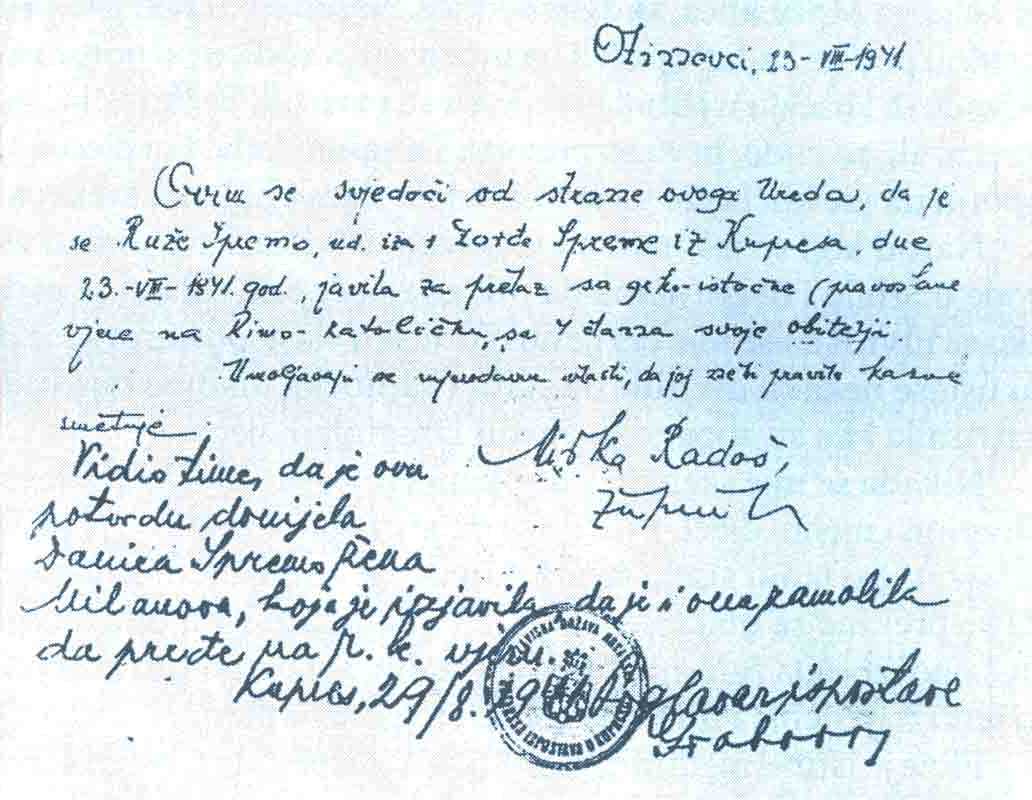 Otinovci, 23-VIII-1941.
Ovim se svjedoči od strane ovoga Ureda, da je
se Ruže Spremo, ud. iza † Đorđe Spreme iz Kupresa, dne
23.-VIII-1941. god., javila za prelaz sa grko-istočne (pravoslavne
vjere na Rimo-katoličku, sa 4 člana svoje obitelji.
Umoljavaju se mjerodavne vlasti, da joj ne bi pravile kakve
smetnje.
Mirko Radoš,
župnik
Vidio time, da je ovu
potvrdu donijela
Danica Spremo žena
Milanova, koja je izjavila, da je i ona zamolila
da pređe na r. k. vjeru.
Kupres, 29/8. 1941
poglavar ispostave